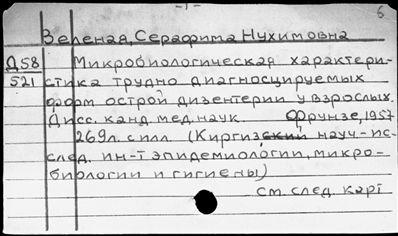 -1-
6
Зеленая, Серафима Нухимовна
Д58 Микробиологическая характери-
521 стика трудно диагносцируемых
форм острой дизентерии у взрослых.
Дисс. канд мед. наук. Фрунзе, 1957
269л. с илл (Киргизский науч-ис-
след. ин-т эпидемиологии, микро-
биологии и гигиены)
см. след. карт